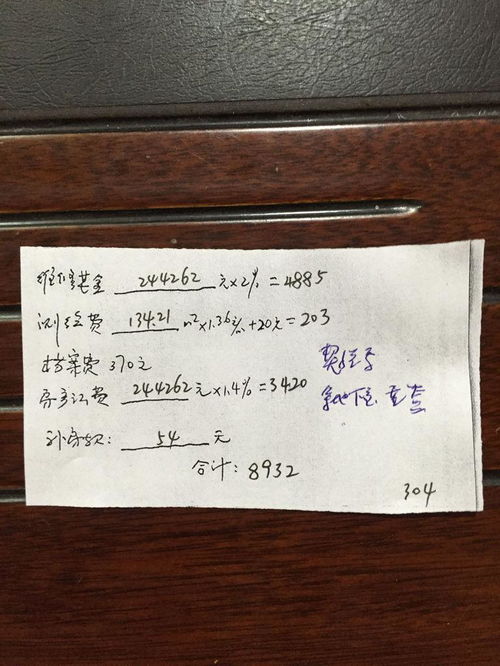 维修基金 244262 元×2% = 4885
测绘费 134.21 m²×1.36%+20元=203
档案费 370元
房产证费 244262元×1.4%=3420
补房款: 54 元
合计: 8932
304